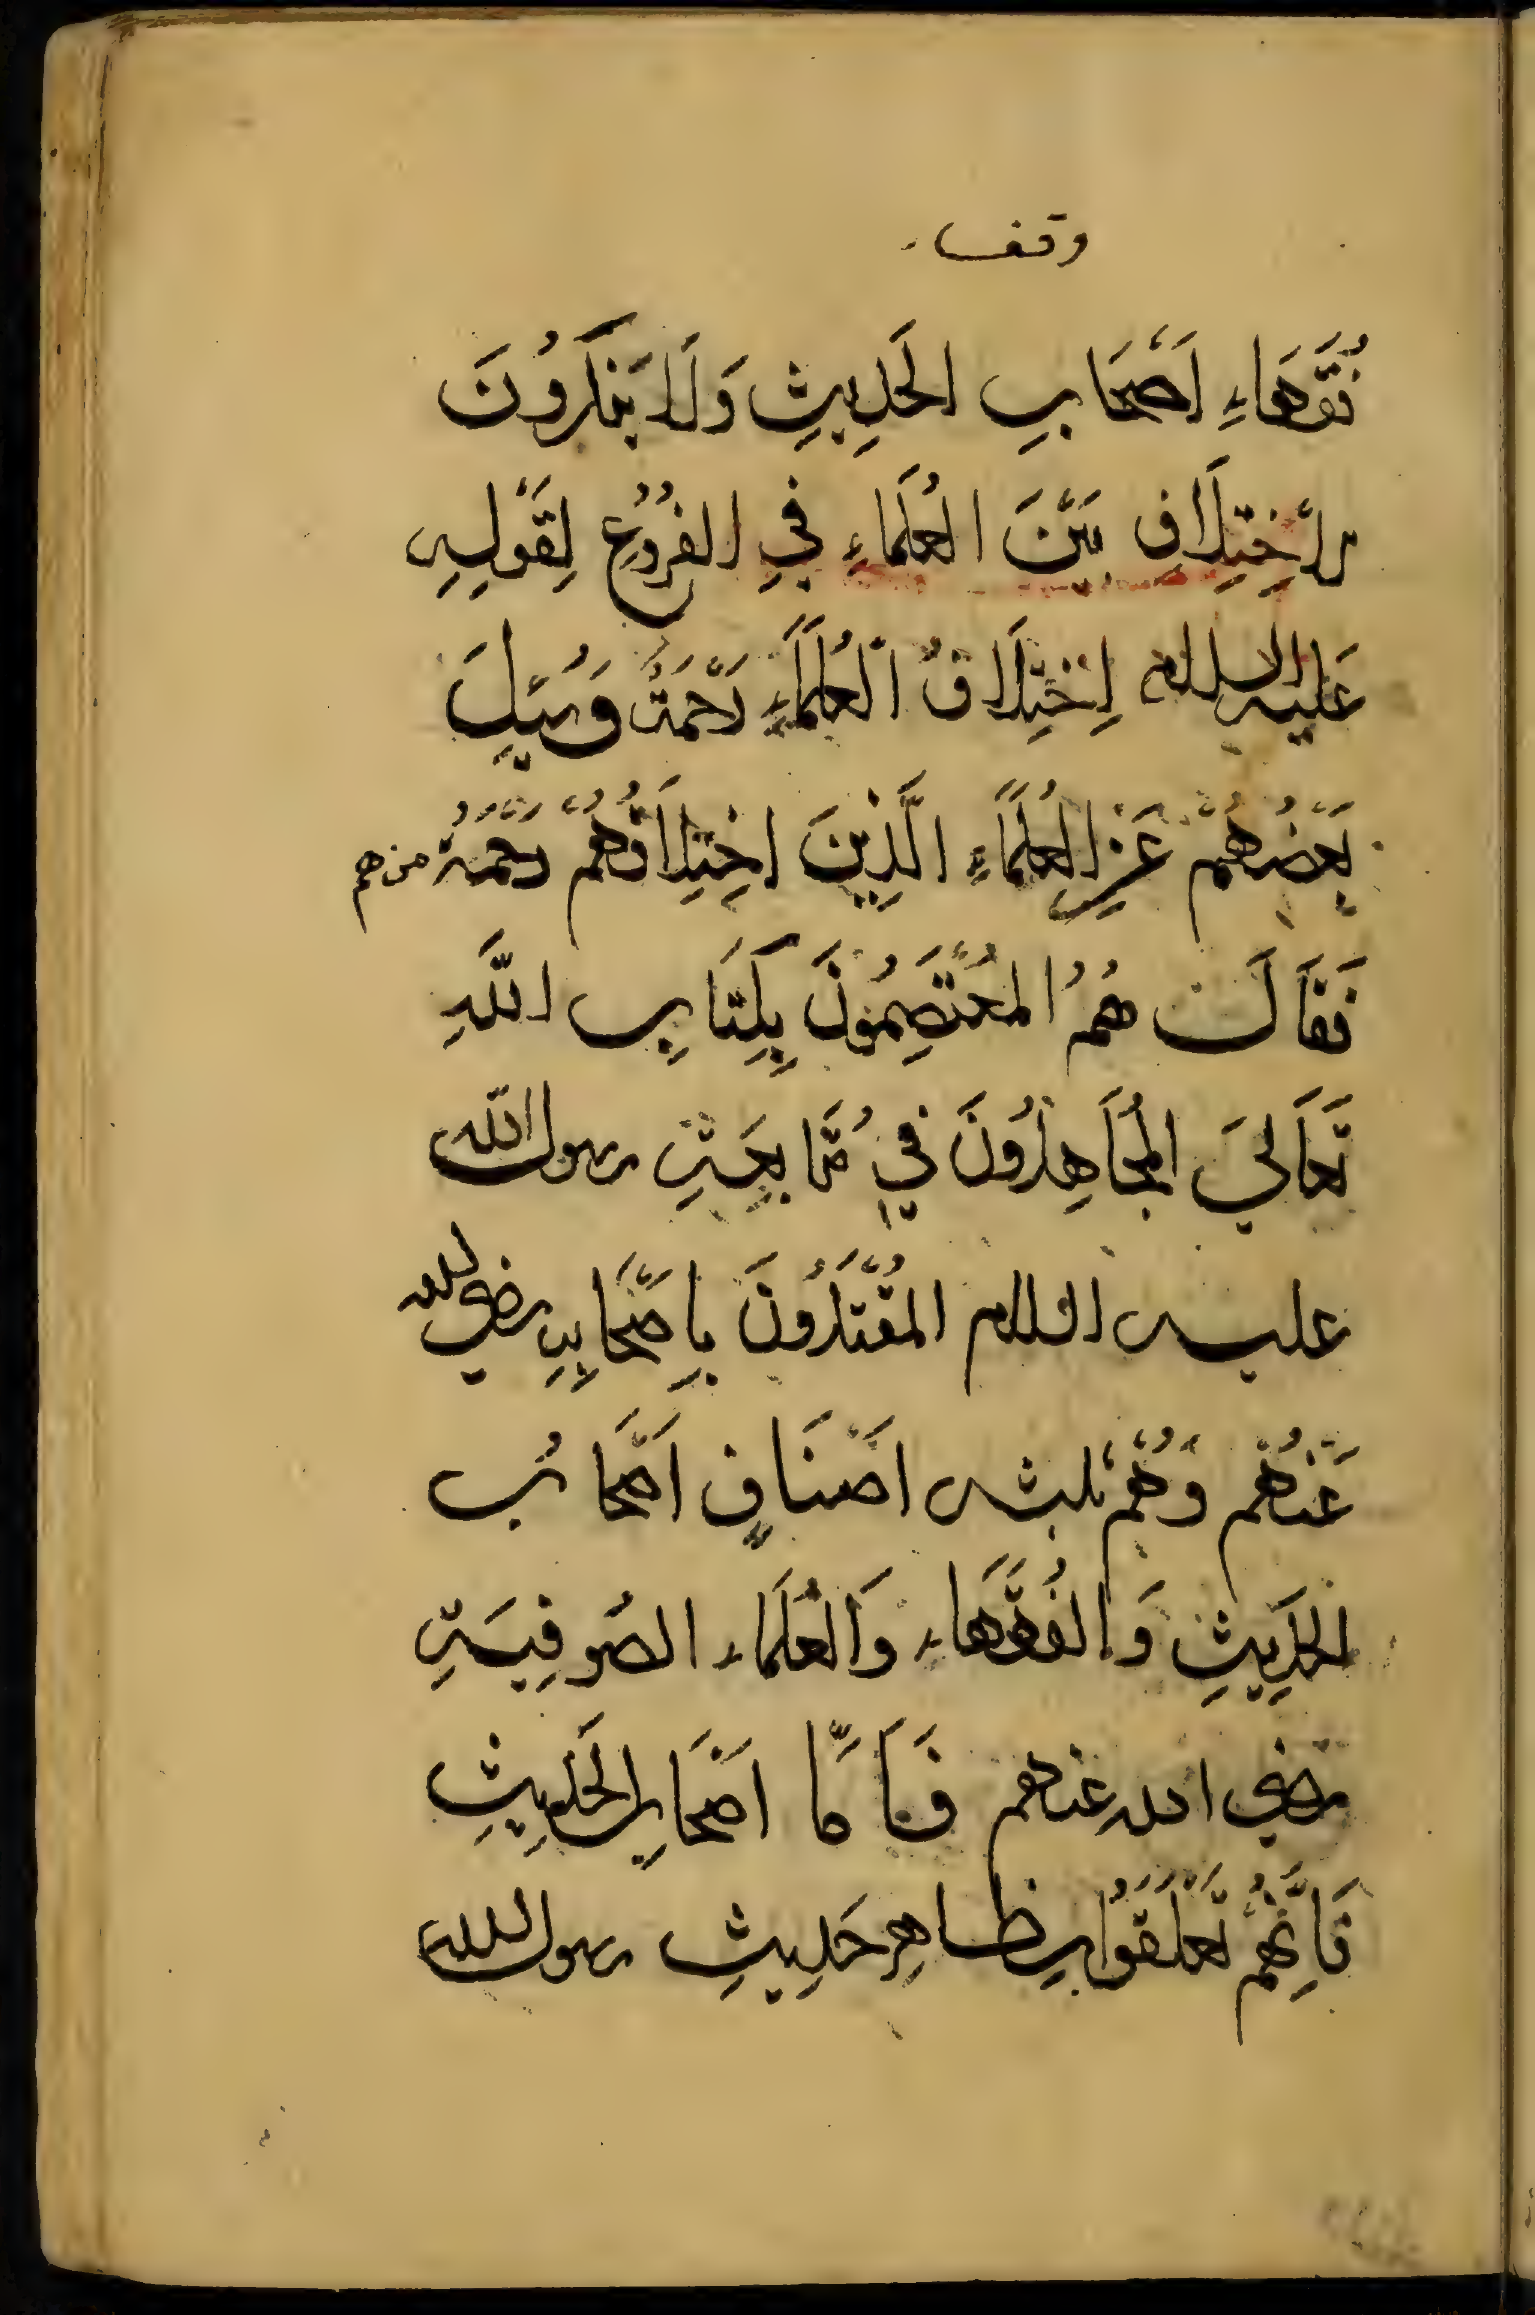 وقف
فُقَهَاءِ اَصْحَابِ الحَدِيثِ وَلَا يُنْكِرُونَ
الاِخْتِلَافَ بَيْنَ العُلَمَاءِ فِي الفُرُوعِ لِقَوْلِهِ
عَليه السلام اِخْتِلَافُ العُلَمَاءِ رَحْمَةٌ وَسُئِلَ
بَعْضُهُمْ عَنِ العُلَمَاءِ الَّذِينَ اخِتِلَافُهُمْ رَحْمَةٌ من هم
فَقَالَ هُمُ المُعْتَصِمُونَ بِكِتَابِ اللَّهِ
تَعَالَىَ المُجَاهِدُونَ فِي مُتَابَعَةِ رسول الله
عليه السلام المُقْتَدُونَ بِاَصْحَابِهِ رضي الله
عَنْهُم وَهُمْ ثلثه اَصْنَافٍ اَصْحَابُ
الحَدِيثِ وَالفُقَهَاءِ وَالعُلَمَاء الصُوفِيَةِ
رضي الله عنهم فَاَمَّا اَصْحَابُ الحَدِيثِ
فَاِنَّهُمْ تَعَلَقَوُا بِظاهِرِ حَدِيثِ رسول الله